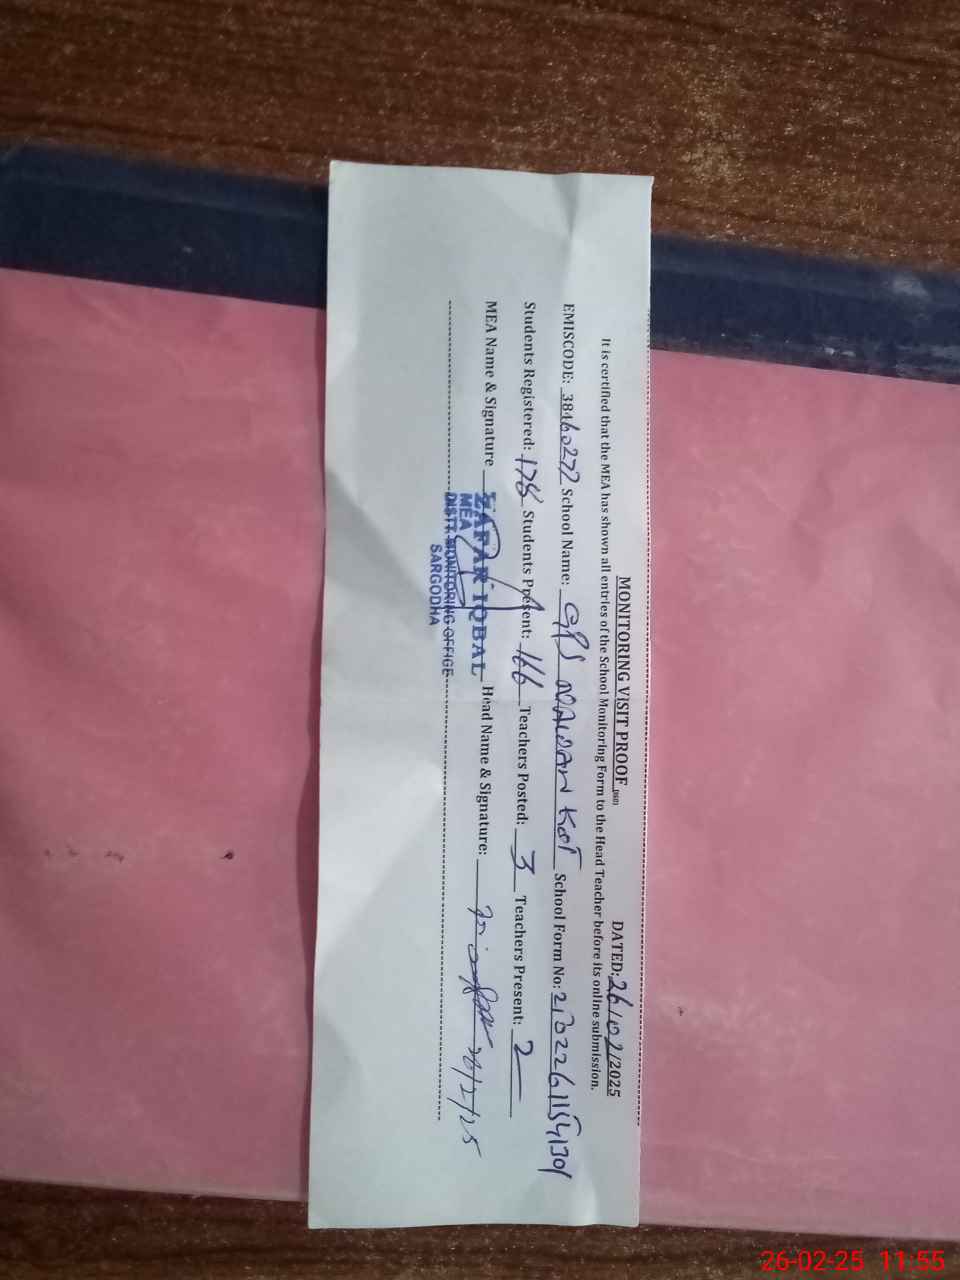 MONITORING VISIT PROOF DATED: 26/02/2025
It is certified that the MEA has shown all entries of the School Monitoring Form to the Head Teacher before its online submission.
EMISCODE: 38460272 School Name: GPS NAWAN KOT School Form No:
Students Registered: 178 Students Present: 166 Teachers Posted: 3 Teachers Present: 2
MEA Name & Signature ZAFAR IQBAL Head Name & Signature: 26/2/25
MEA
DISTT. MONITORING OFFICE
SARGODHA
26-02-25 11:55